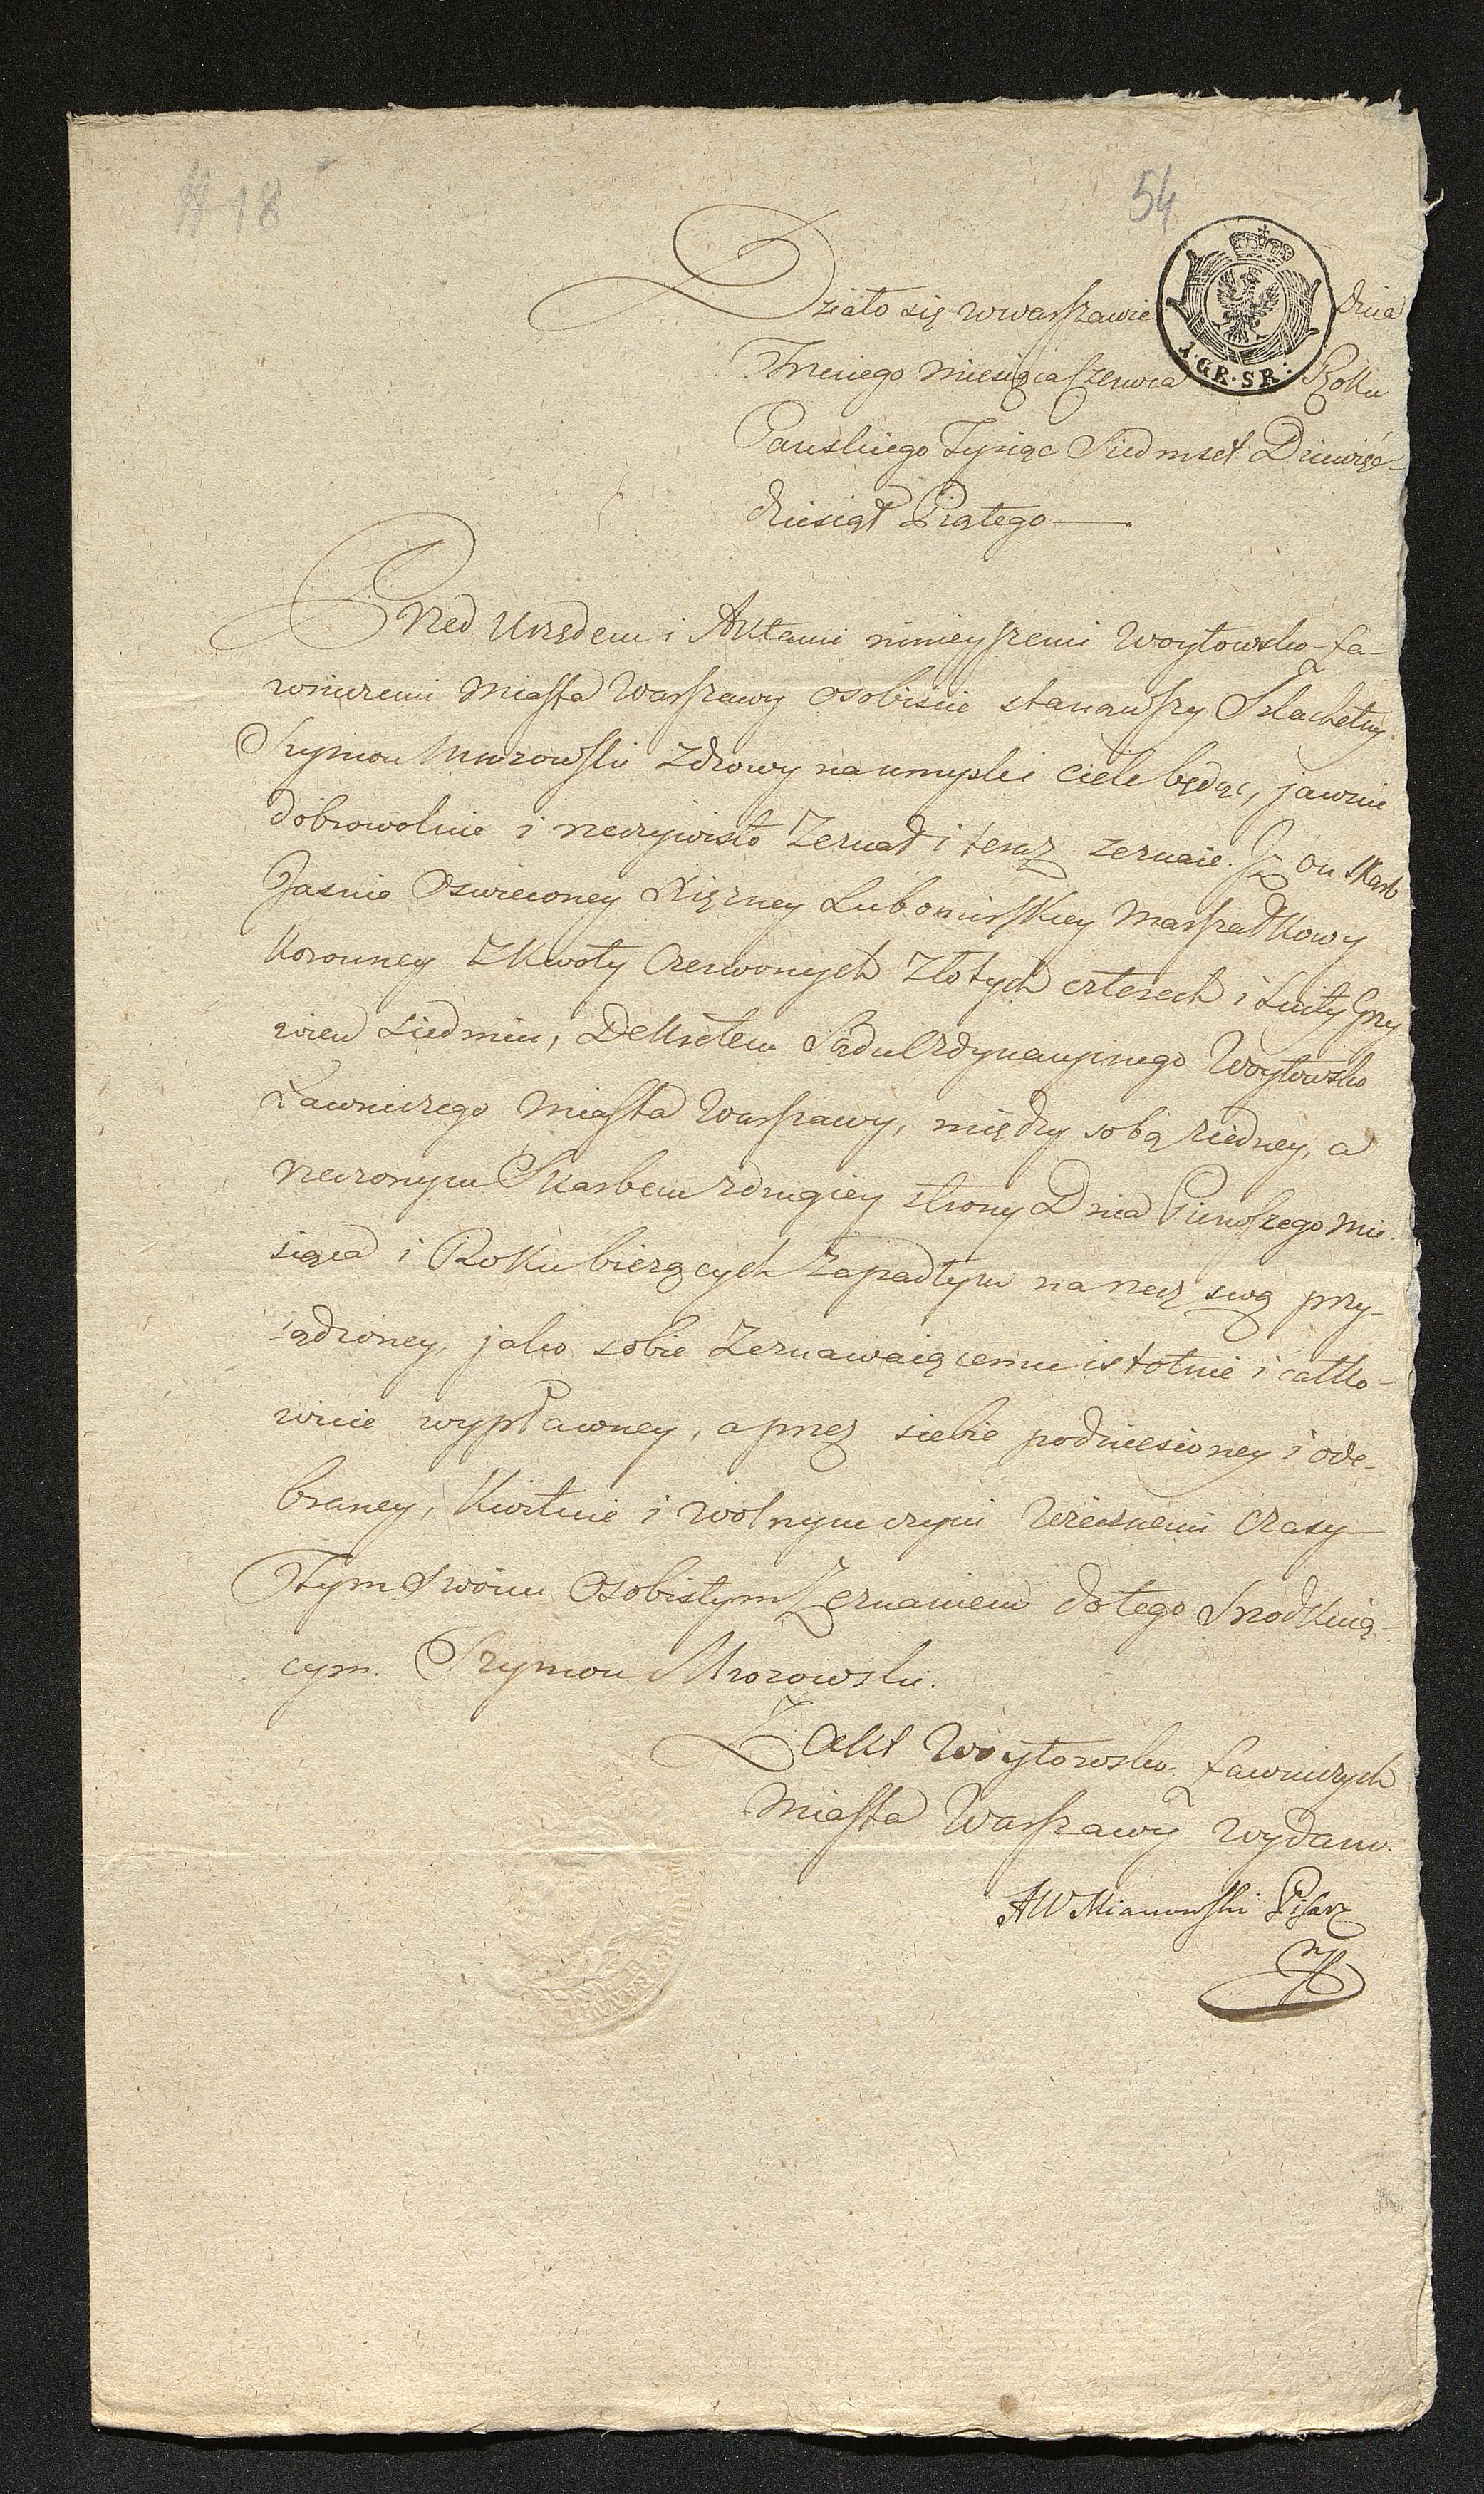 # 18
54
Działo się w Warszawie Dnia
1. GR. SR.
Trzeciego Miesiąca Czerwca Roku
Panskiego Tysiąc Siedmset Dziewięć-
dziesiąt Piątego
Przed Urzędem i Aktami ninieyszemi Woytowsko Ła-
wniczemi Miasta Warszawy osobiscie stanąwszy Szlachetny
Szymon Mrozowski zdrowy na umysle i ciele będąc, jawnie
dobrowolnie i rzeczywisto Zeznał i teraz zeznaie. Iż on Skarb
Jasnie Oswieconey Xiężney Lubomirskiey Marszałkowy
Koronney z Kwoty Czerwonych Złotych czterech i Grzy
wien Siedmiu, Dekretem Sądu Ordynaryinego Woytowsko
Ławniczego Miasta Warszawy, między sobą z iedney, a
rzeczonym Skarbem z drugiey strony Dnia Pierwszego Mie-
siąca i Roku bierzących zapadłym na rzecz swą przy-
sądzoney, jako sobie Zeznawaiącemu istotnie i całko-
wicie wypłaconey, a przez siebie podniesioney i ode-
braney, Kwituie i wolnym czyni wiecznemi czasy
Tym Swoim Osobistym Zeznaniem do tego Srzodkuią-
cym. Szymon Mrozowski.
Z Akt Woytowsko Ławniczych
Miasta Warszawy wydano.
AW Mianowski Pisarz